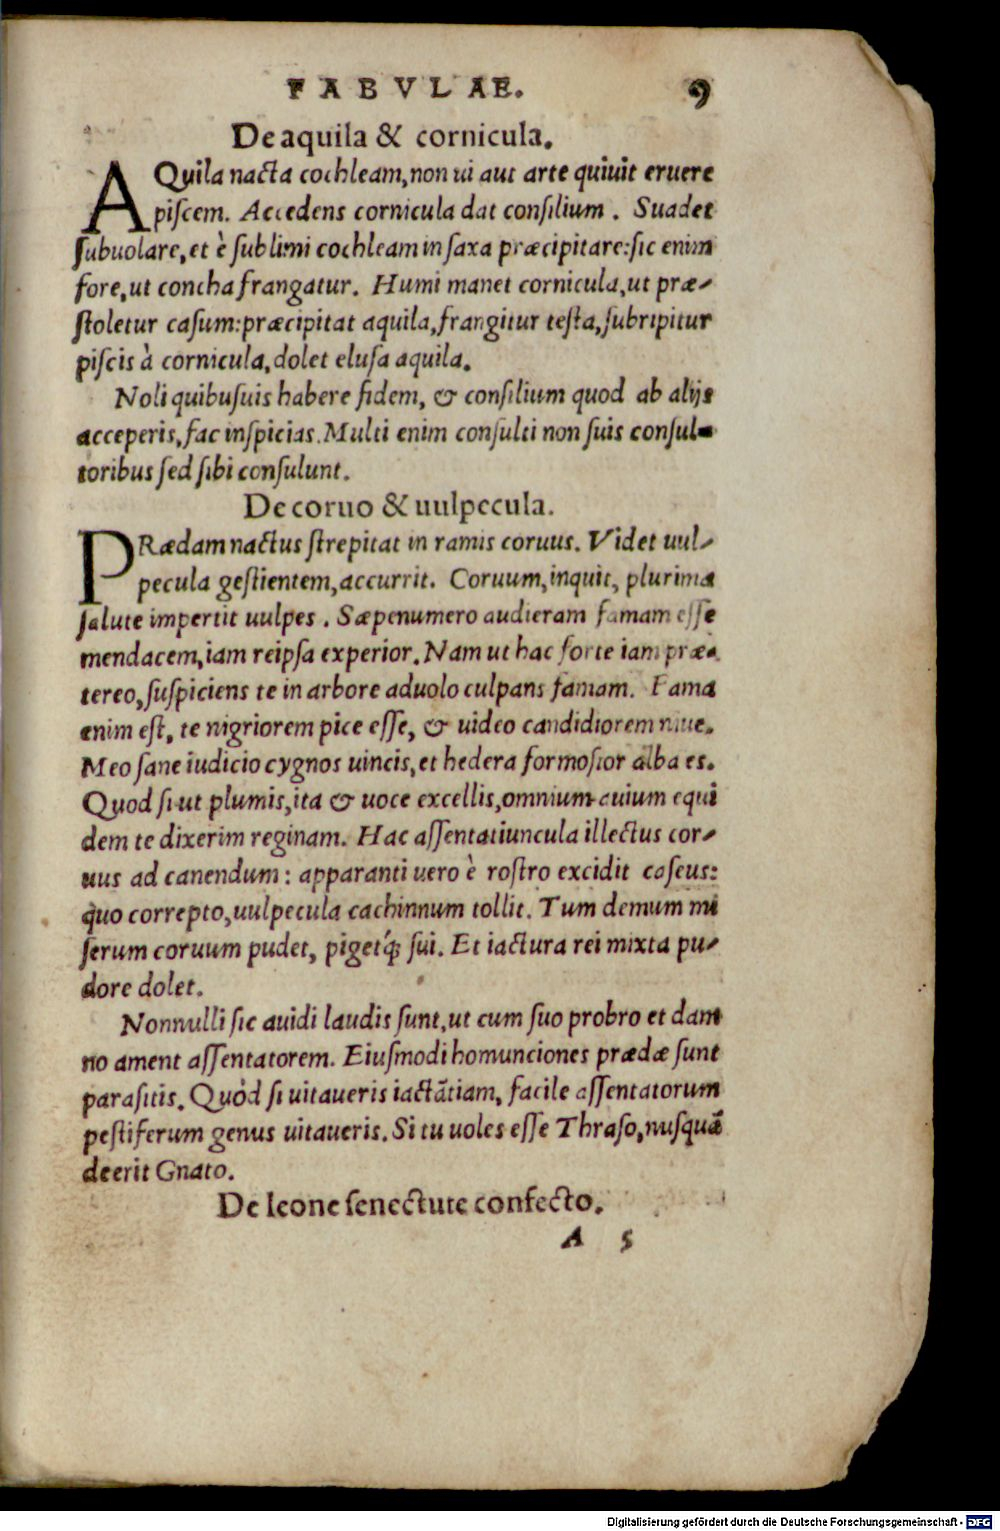 FABVLAE. 9
De aquila & cornicula.
AQuila nacta cochleam, non ui aut arte quiuit eruere
piſcem. Accedens cornicula dat conſilium. Suadet
ſubuolare, et è ſublimi cochleam in ſaxa præcipitare: ſic enim
fore, ut concha frangatur. Humi manet cornicula, ut præ-
ſtoletur caſum: præcipitat aquila, frangitur teſta, ſubripitur
piſcis à cornicula, dolet eluſa aquila.
Noli quibuſuis habere fidem, & conſilium quod ab alijs
acceperis, fac inſpicias. Multi enim conſulti non ſuis conſul-
toribus ſed ſibi conſulunt.
De coruo & uulpecula.
PRædam nactus ſtrepitat in ramis coruus. Videt uul-
pecula geſtientem, accurrit. Coruum, inquit, plurima
ſalute impertit uulpes. Sæpenumero audieram famam eſſe
mendacem, iam reipſa experior. Nam ut hac forte iam præ-
tereo, ſuſpiciens te in arbore aduolo culpans famam. Fama
enim eſt, te nigriorem pice eſſe, & uideo candidiorem niue.
Meo ſane iudicio cygnos uincis, et hedera formoſior alba es.
Quod ſi ut plumis, ita & uoce excellis, omnium auium equi
dem te dixerim reginam. Hac aſſentatiuncula illectus cor-
uus ad canendum: apparanti uero è roſtro excidit caſeus:
quo correpto, uulpecula cachinnum tollit. Tum demum mi
ſerum coruum pudet, pigetq́; ſui. Et iactura rei mixta pu-
dore dolet.
Nonnulli ſic auidi laudis ſunt, ut cum ſuo probro et dam
no ament aſſentatorem. Eiuſmodi homunciones prædæ ſunt
paraſitis. Quòd ſi uitaueris iactãtiam, facile aſſentatorum
peſtiferum genus uitaueris. Si tu uoles eſſe Thraſo, nuſquã
deerit Gnato.
De leone ſenectute confecto.
A 5
Digitalisierung gefördert durch die Deutsche Forschungsgemeinschaft - DFG